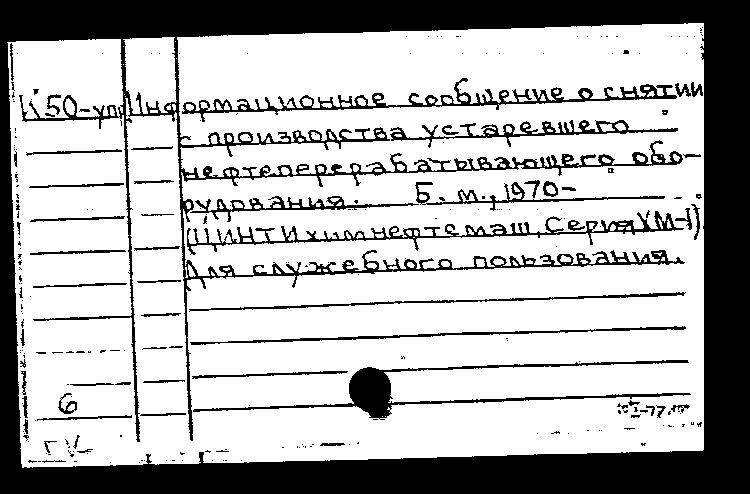 К50-упр Информационное сообщение о снятии
с производства устаревшего
нефтеперерабатывающего обо-
рудования. Б. м., 1970-
(ЦИНТИхимнефтемаш. Серия ХМ-1).
Для служебного пользования.
6